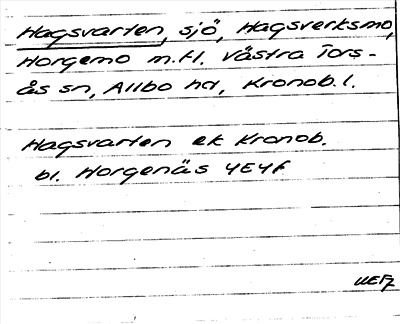 Hagsvarten, sjö, Hagsverksmo,
Horgemo m.fl. Västra Tors-
ås sn, Allbo hd, Kronob. l.
Hagsvarten ek Kronob.
bl. Horgenäs 4E4f